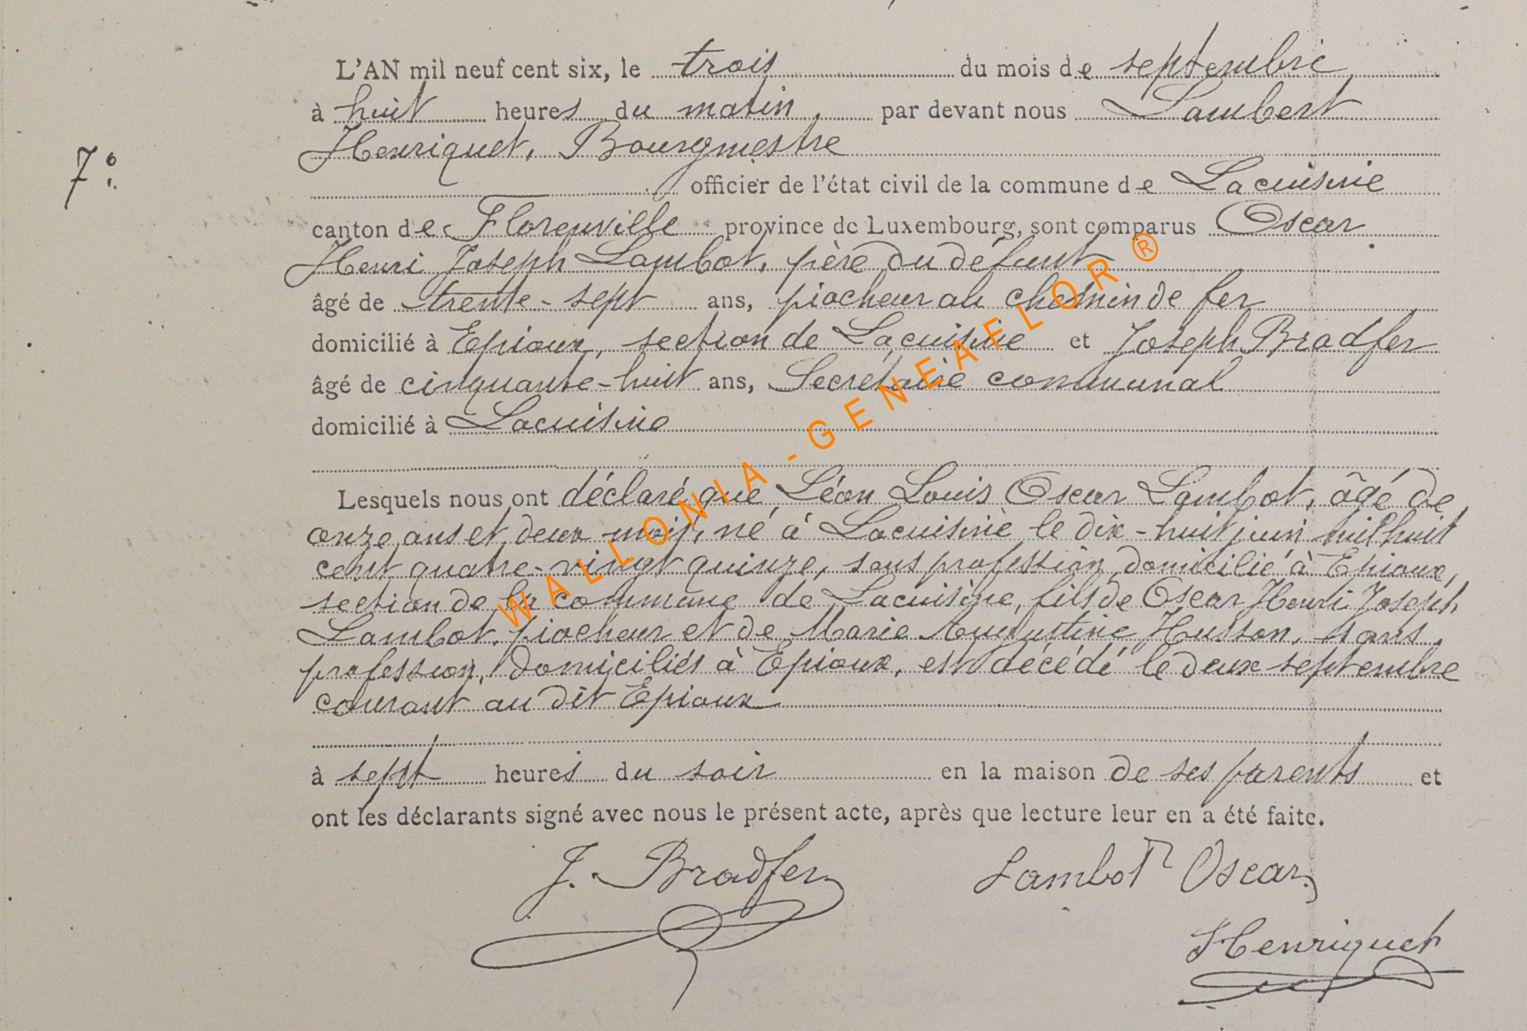 L'AN mil neuf cent six, le trois du mois de septembre
à huit heures du matin par devant nous Lambert
Henriquet, Bourgmestre
7°
officier de l'état civil de la commune de Lacuisine
canton de Florenville province de Luxembourg, sont comparus Oscar
Henri Joseph Lambot, père du défunt
âgé de trente-sept ans, piocheur au chemin de fer
domicilié à Epioux, section de Lacuisine et Joseph Bradfer
âgé de cinquante-huit ans, Secrétaire communal
domicilié à Lacuisine
Lesquels nous ont déclaré que Léon Louis Oscar Lambot, âgé de
onze ans et deux mois, né à Lacuisine le dix-huit juin mil huit
cent quatre-vingt quinze, sans profession, domicilié à Epioux,
section de la commune de Lacuisine, fils de Oscar Henri Joseph
Lambot, piocheur et de Marie Augustine Husson, sans
profession, domiciliés à Epioux, est décédé le deux septembre
courant au dit Epioux
à sept heures du soir en la maison de ses parents et
ont les déclarants signé avec nous le présent acte, après que lecture leur en a été faite.
J. Bradfer Lambot Oscar
Henriquet
WALLONIA - GENEAELOR ®